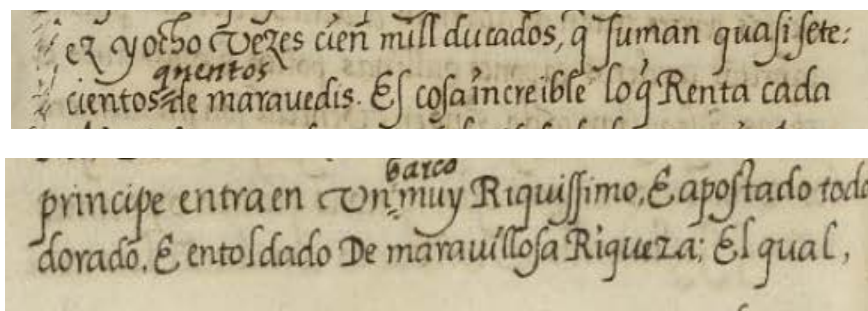 ez y ocho vezes cien mill ducados, q̃ suman quasi sete:
quentos
cientos de marauedis. Es cosa increible lo q̃ Renta cada
barco
principe entra en vn muy Riquissimo, E apostado todo
dorado, E entoldado De marauillosa Riqueza; El qual,